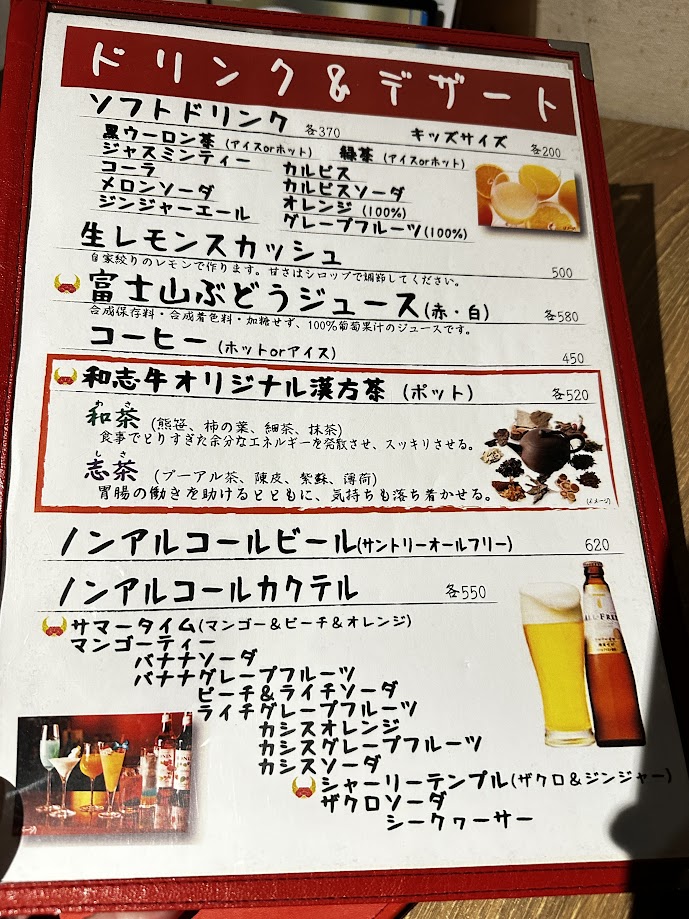 ドリンク&デザート
ソフトドリンク 各370 キッズサイズ 各200
黒ウーロン茶(アイスorホット) 緑茶(アイスorホット)
ジャスミンティー
コーラ カルピス
メロンソーダ カルピスソーダ
ジンジャーエール オレンジ(100%)
グレープフルーツ(100%)
生レモンスカッシュ 500
自家絞りのレモンで作ります。甘さはシロップで調節してください。
富士山ぶどうジュース(赤・白) 各580
合成保存料・合成着色料・加糖せず、100%葡萄果汁のジュースです。
コーヒー(ホットorアイス) 450
和志牛オリジナル漢方茶(ポット) 各520
わさ
和茶(熊笹、柿の葉、細茶、抹茶)
食事でとりすぎた余分なエネルギーを発散させ、スッキリさせる。
しさ
志茶(プーアル茶、陳皮、紫蘇、薄荷)
胃腸の働きを助けるとともに、気持ちも落ち着かせる。
(イメージ)
ノンアルコールビール(サントリーオールフリー) 620
ノンアルコールカクテル 各550
サマータイム(マンゴー&ピーチ&オレンジ)
マンゴーティー
バナナソーダ
バナナグレープフルーツ
ピーチ&ライチソーダ
ライチグレープフルーツ
カシスオレンジ
カシスグレープフルーツ
カシスソーダ
シャーリーテンプル(ザクロ&ジンジャー)
ザクロソーダ
シークヮーサー
ALL-FREE